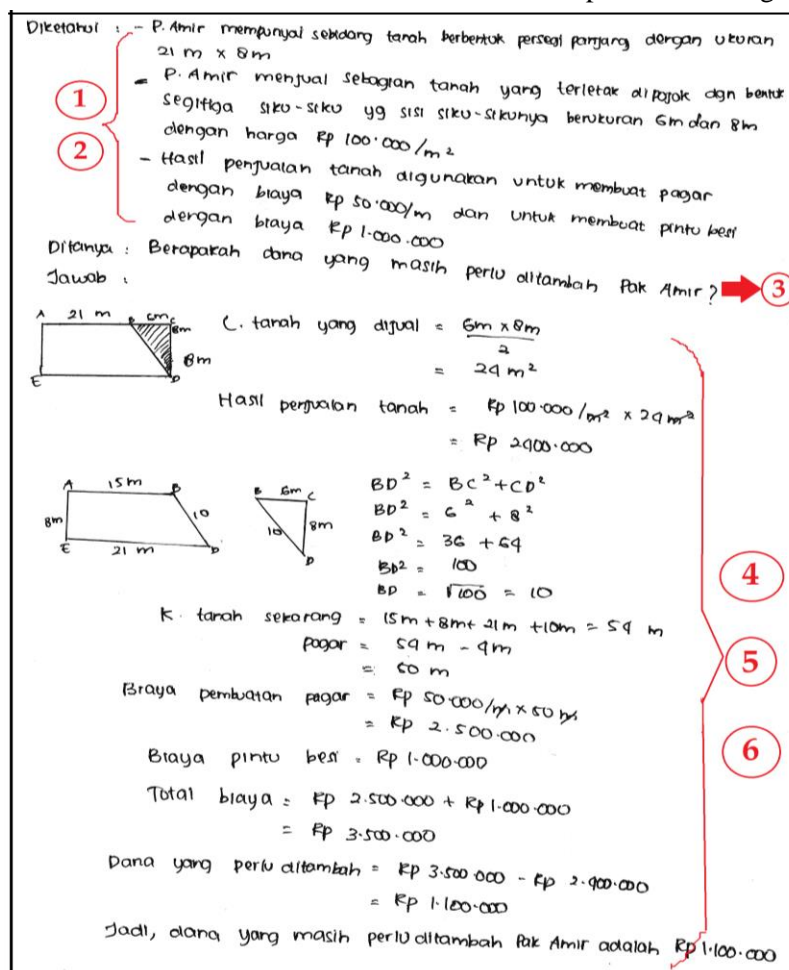 Diketahui : - P. Amir mempunyai sebidang tanah berbentuk persegi panjang dengan ukuran
21 m x 8m
- P. Amir menjual sebagian tanah yang terletak dipojok dgn bentuk
segitiga siku-siku yg sisi siku-sikunya berukuran 6m dan 8m
dengan harga Rp 100.000/m²
1
2
- Hasil penjualan tanah digunakan untuk membuat pagar
dengan biaya Rp 50.000/m dan untuk membuat pintu besi
dengan biaya Rp 1.000.000
Ditanya : Berapakah dana yang masih perlu ditambah Pak Amir? 3
Jawab :
A 21 m B 6m C
8m
8m
E D
L. tanah yang dijual = 6m x 8m
2
= 24 m²
Hasil penjualan tanah = Rp 100.000/m² x 24 m²
= Rp 2.400.000
A 15m B
8m 10
E 21 m D
B 6m C
10 8m
D
BD² = BC² + CD²
BD² = 6² + 8²
BD² = 36 + 64
BD² = 100
BD = √100 = 10
4
K. tanah sekarang = 15m + 8m + 21m + 10m = 54 m
pagar = 54 m - 4m
= 50 m
5
Biaya pembuatan pagar = Rp 50.000/m x 50 m
= Rp 2.500.000
6
Biaya pintu besi = Rp 1.000.000
Total biaya = Rp 2.500.000 + Rp 1.000.000
= Rp 3.500.000
Dana yang perlu ditambah = Rp 3.500.000 - Rp 2.400.000
= Rp 1.100.000
Jadi, dana yang masih perlu ditambah Pak Amir adalah Rp 1.100.000